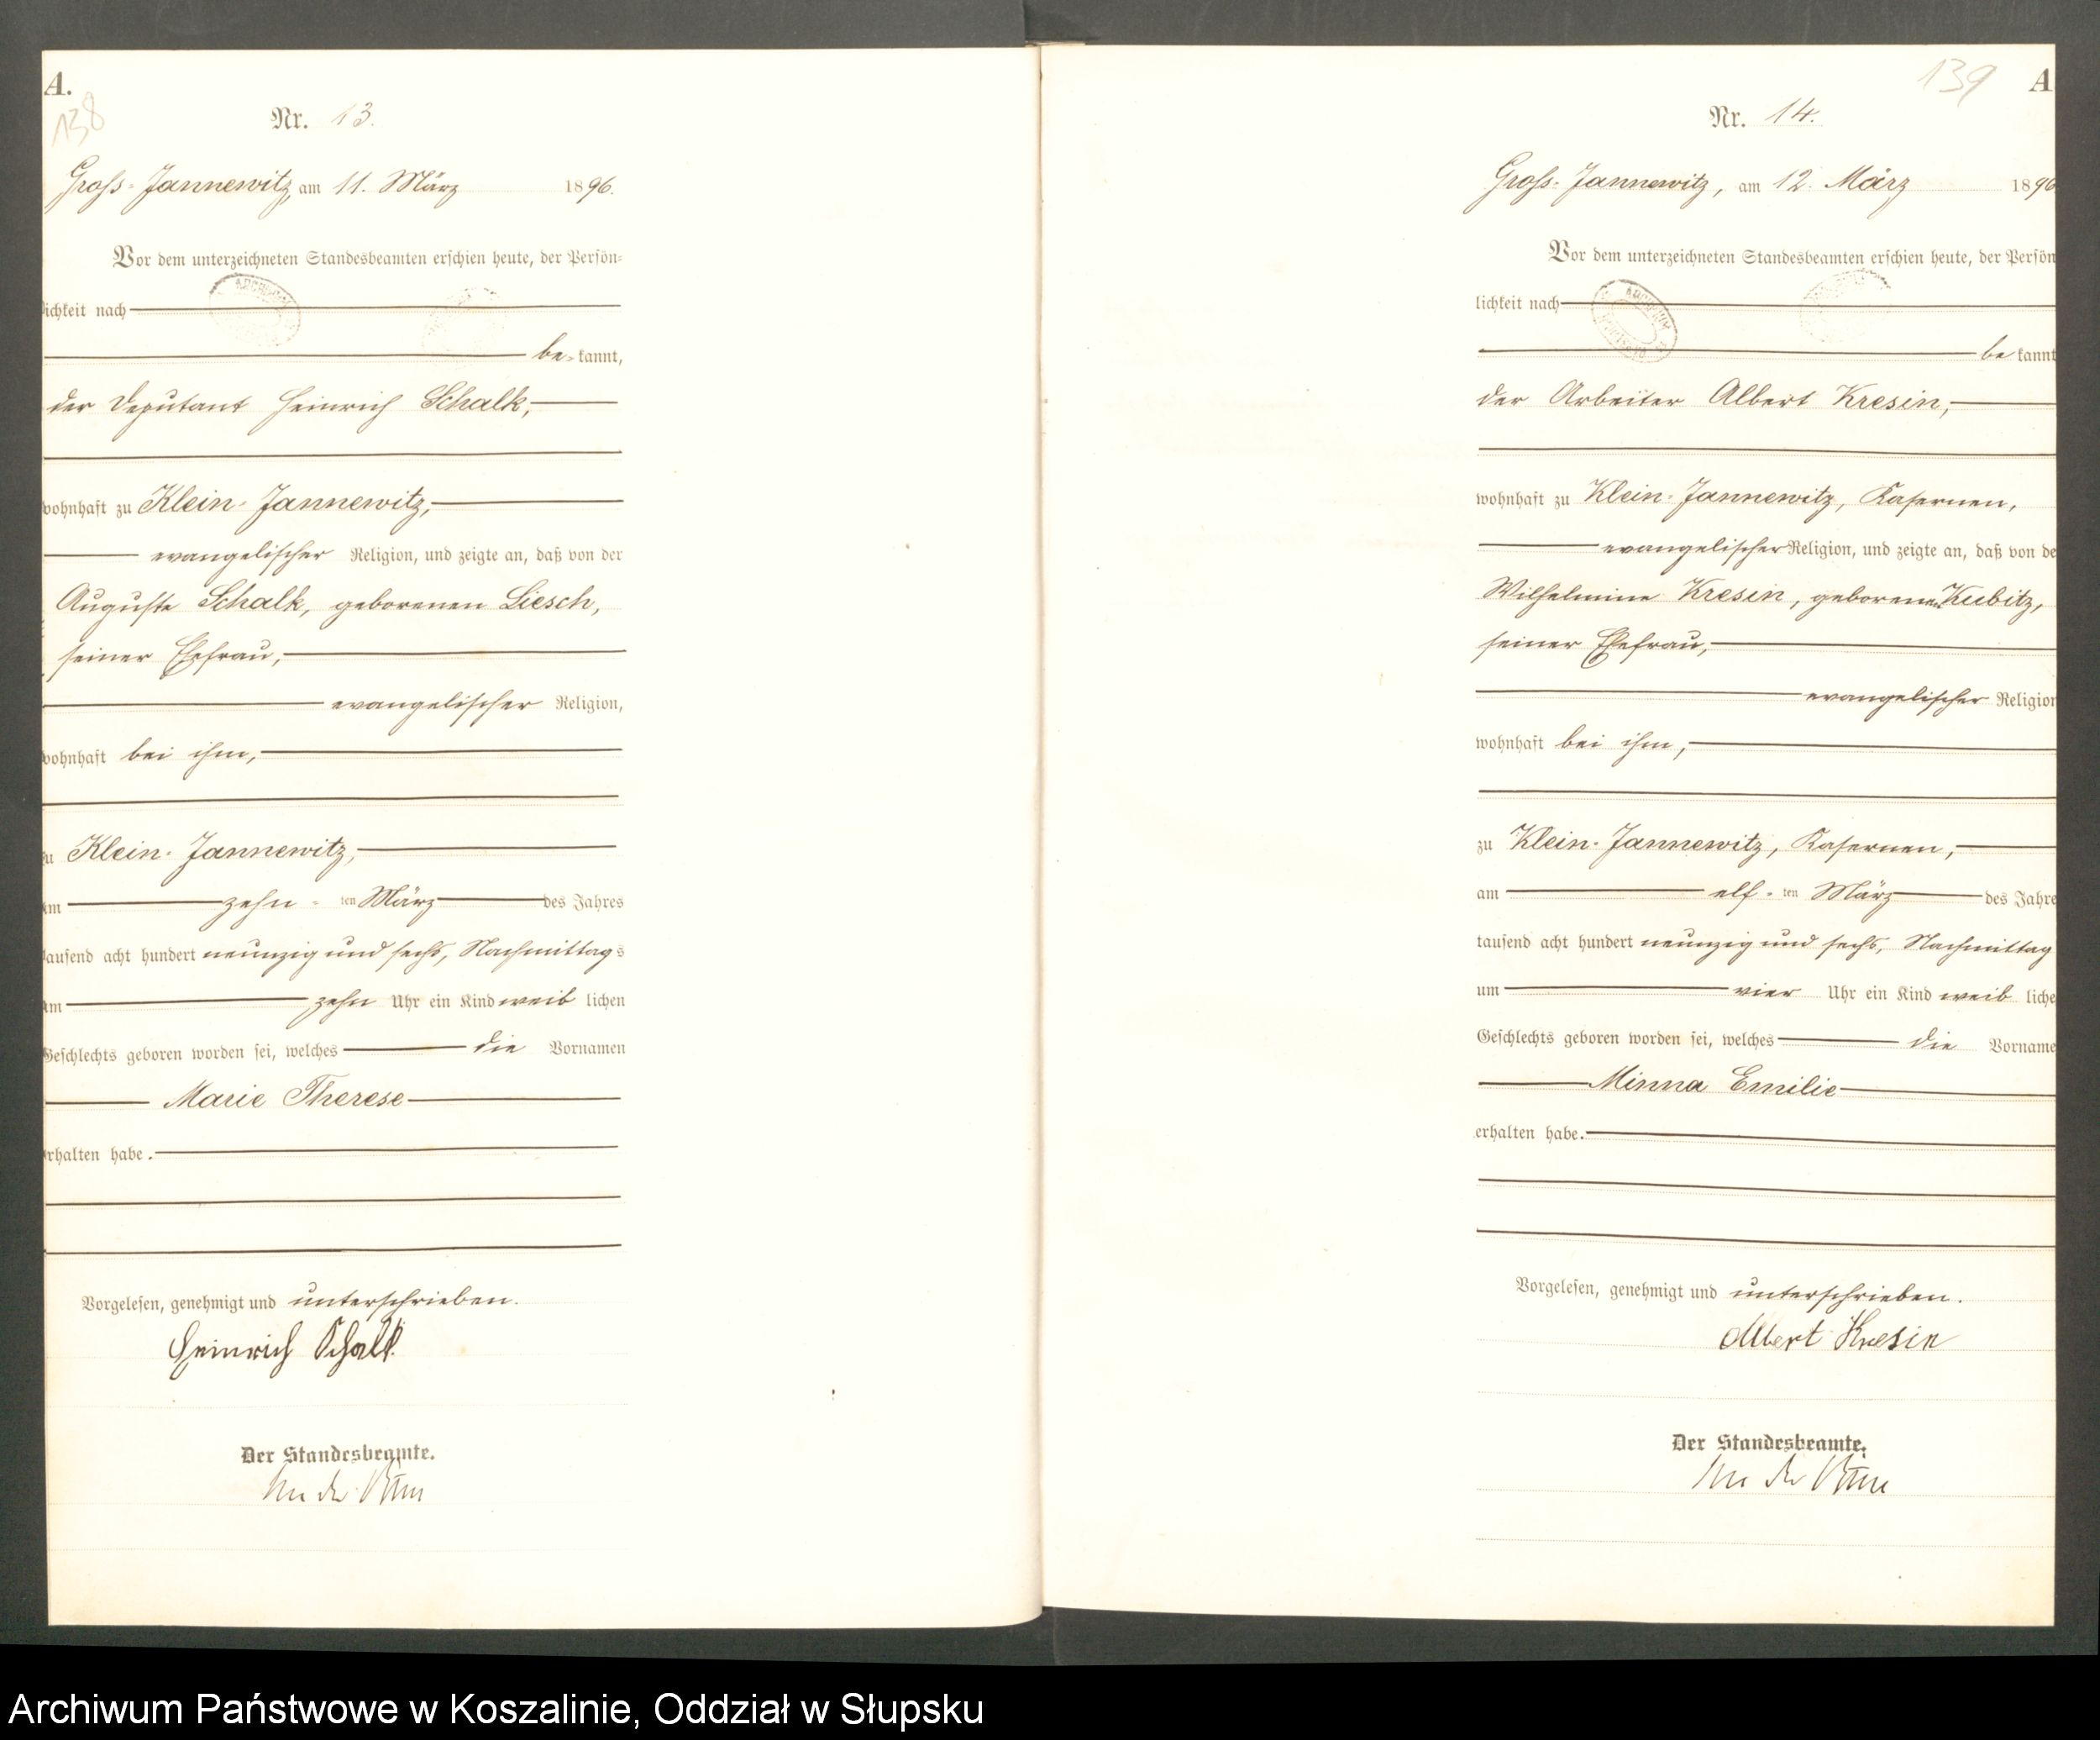 A.
138
Nr. 13.
Gross-Jannewitz, am 11. März 1896.
Vor dem unterzeichneten Standesbeamten erschien heute, der Persön-
lichkeit nach
be-kannt,
der Deputant Heinrich Schalk,
wohnhaft zu Klein-Jannewitz,
evangelischer Religion, und zeigte an, daß von der
Auguste Schalk, geborenen Liesch,
seiner Ehefrau,
evangelischer Religion,
wohnhaft bei ihm,
zu Klein-Jannewitz,
am zehn-ten März des Jahres
tausend acht hundert neunzig und sechs, Nachmittags
um zehn Uhr ein Kind weiblichen
Geschlechts geboren worden sei, welches die Vornamen
Marie Therese
erhalten habe.
Vorgelesen, genehmigt und unterschrieben.
Heinrich Schalk
Der Standesbeamte.
139
A
Nr. 14.
Gross-Jannewitz, am 12. März 1896
Vor dem unterzeichneten Standesbeamten erschien heute, der Persön
lichkeit nach
be kannt
der Arbeiter Albert Kresin,
wohnhaft zu Klein-Jannewitz, Kasernen,
evangelischer Religion, und zeigte an, daß von de
Wilhelmine Kresin, geborenen Kubitz,
seiner Ehefrau,
evangelischer Religion
wohnhaft bei ihm,
zu Klein-Jannewitz, Kasernen,
am elf-ten März des Jahre
tausend acht hundert neunzig und sechs, Nachmittag
um vier Uhr ein Kind weib liche
Geschlechts geboren worden sei, welches die Vorname
Minna Emilie
erhalten habe.
Vorgelesen, genehmigt und unterschrieben.
Albert Kresin
Der Standesbeamte.
Archiwum Państwowe w Koszalinie, Oddział w Słupsku